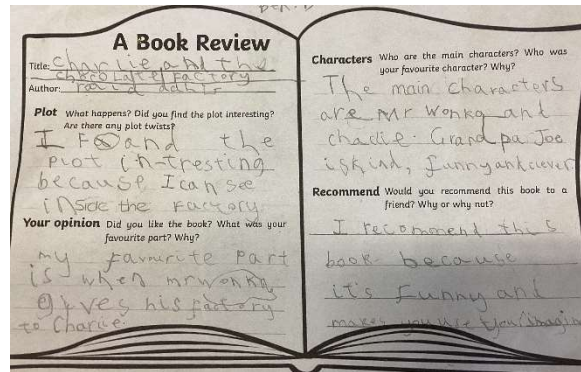 A Book Review
Title: Charlie and the
Choco Late Factory
Author: raid dahls
Plot What happens? Did you find the plot interesting?
Are there any plot twists?
I Foand the
Plot in-tresting
because I can see
inside the Factory
Your opinion Did you like the book? What was your
favourite part? Why?
my favourite Part
is when mr wonka
gives his factory
to Charlie.
Characters Who are the main characters? Who was
your favourite character? Why?
The main characters
are Mr Wonka and
chadie. Grandpa Joe
is kind, funny and clever.
Recommend Would you recommend this book to a
friend? Why or why not?
I recommend this
book because
it's funny and
makes you use